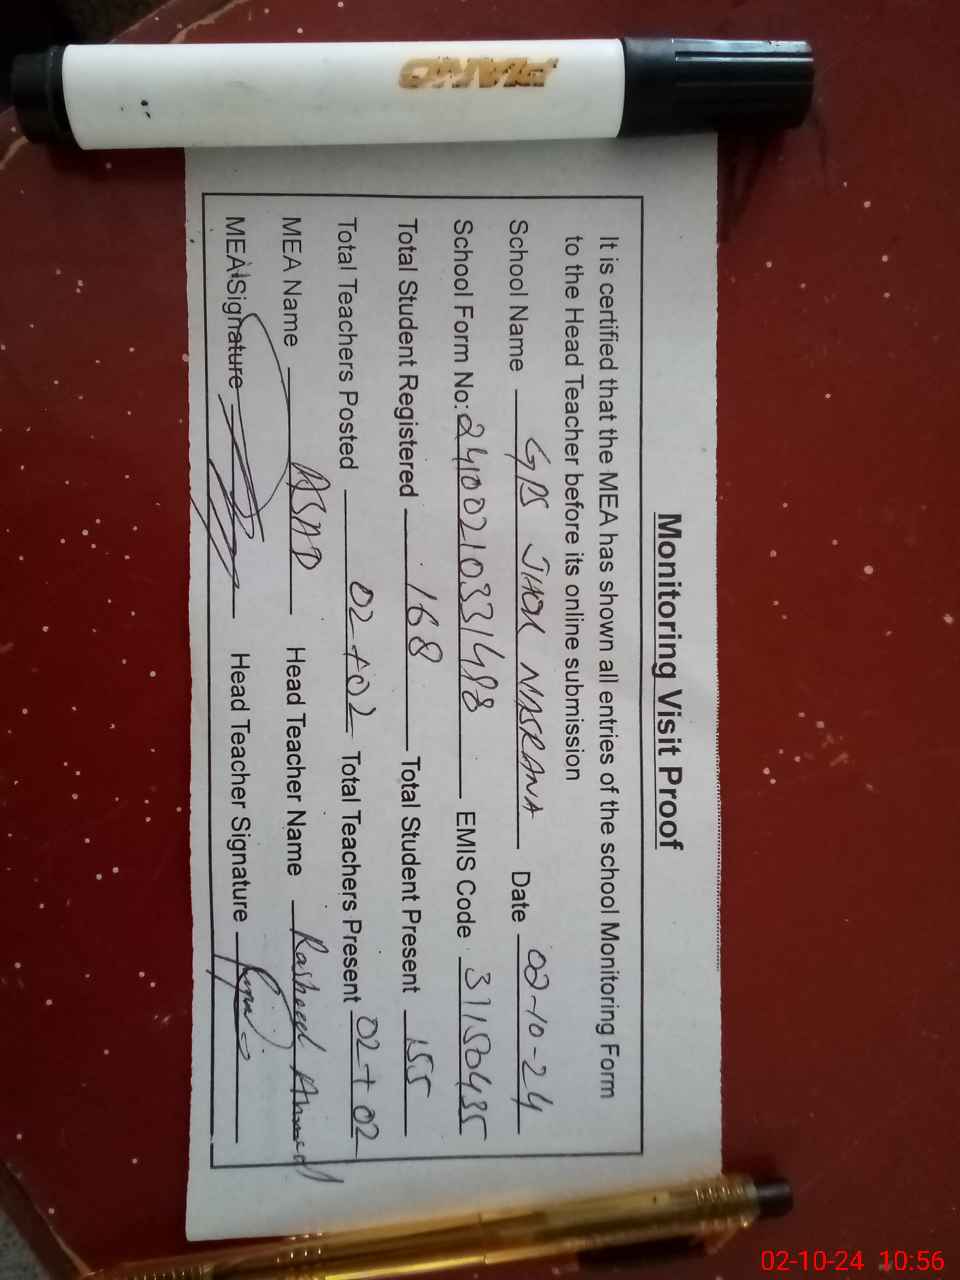 PIANO
Monitoring Visit Proof
It is certified that the MEA has shown all entries of the school Monitoring Form
to the Head Teacher before its online submission
School Name GPS JHOK NASRANA Date 02-10-24
School Form No: 24100210331488 EMIS Code 31150435
Total Student Registered 168 Total Student Present 155
Total Teachers Posted 02+02 Total Teachers Present 02+02
MEA Name ASAD Head Teacher Name Rasheed Ahmed
MEA Signature Head Teacher Signature
02-10-24 10:56